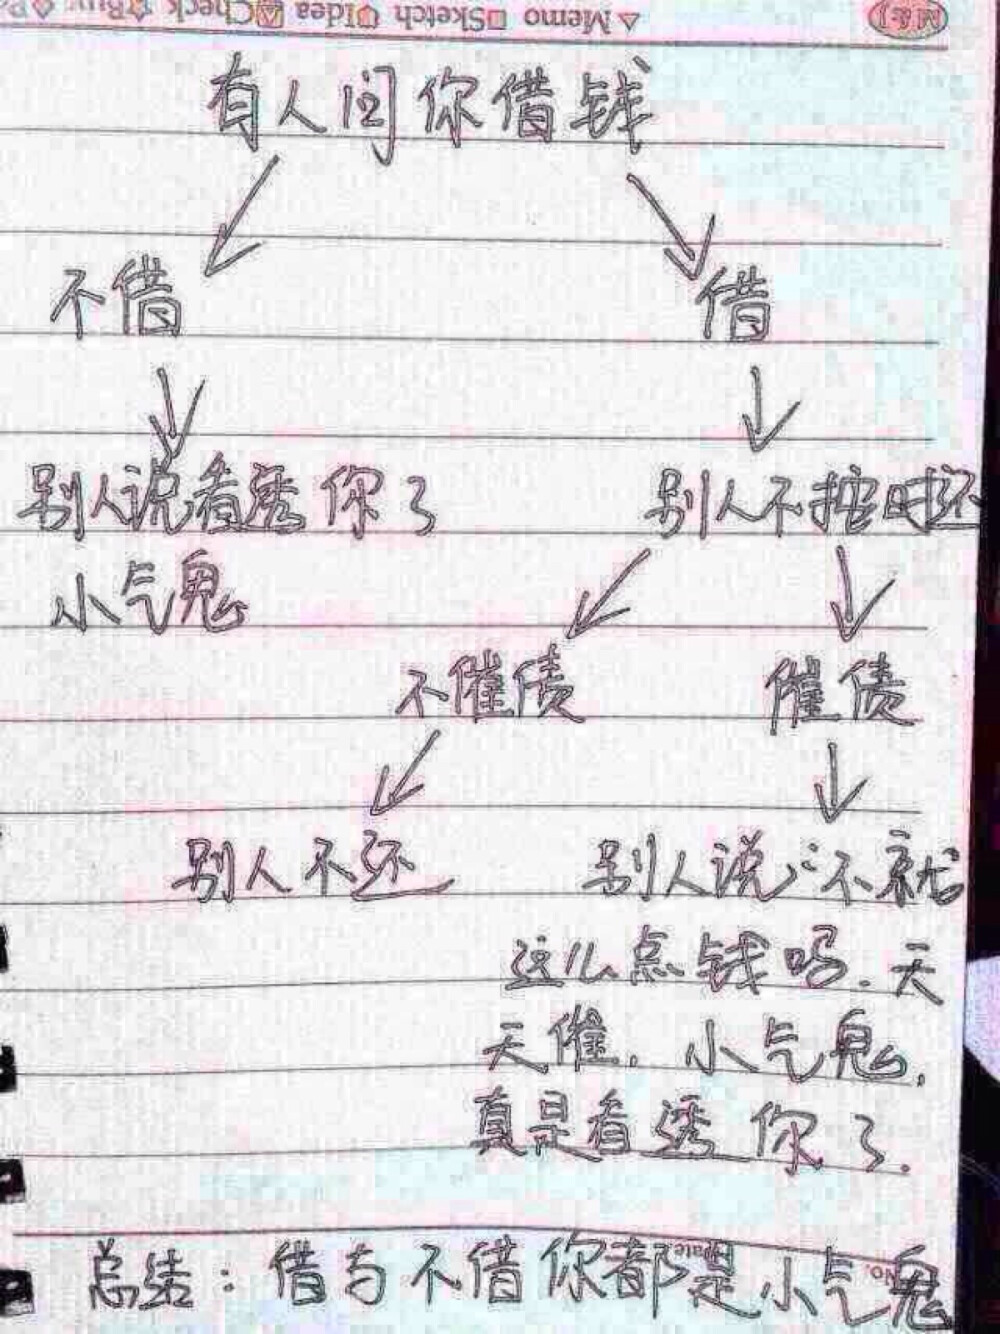 M&J
△Memo □Sketch Idea Check Buy
有人问你借钱
不借 借
别人说看透你了 别人不按时还
小气鬼
不催债 催债
别人不还 别人说:不就
这么点钱吗.天
天催,小气鬼,
真是看透你了.
Date
No.
总结:借与不借你都是小气鬼